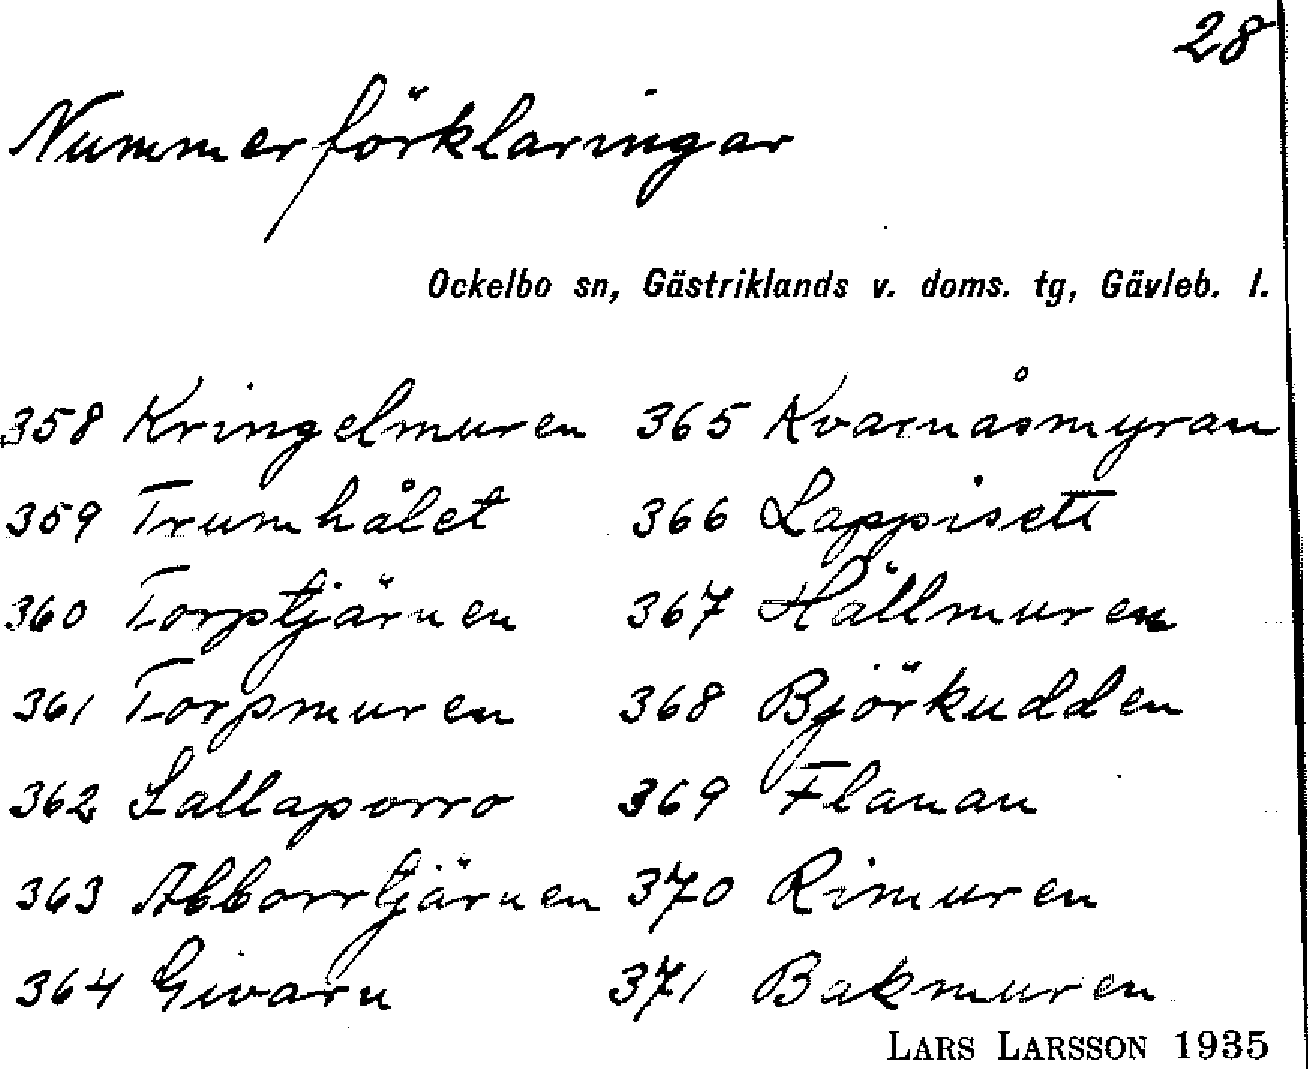 28
Nummerförklaringar
Ockelbo sn, Gästriklands v. doms. tg, Gävleb. l.
358 Kringelmuren 365 Kvarnåsmyran
359 Trumhålet 366 Lappisett
360 Torptjärnen 367 Hällmuren
361 Torpmuren 368 Björkudden
362 Lallaporro 369 Flanan
363 Abborrtjärnen 370 Rimuren
364 Givarn 371 Bakmuren
LARS LARSSON 1935